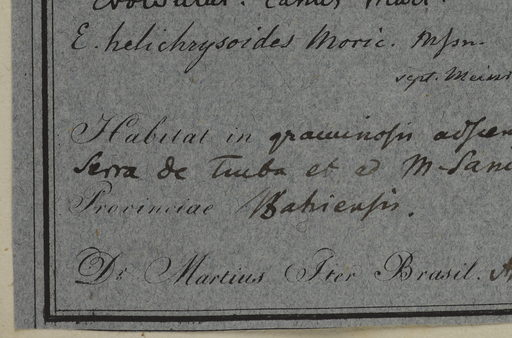 Evolvulus.
E. helichrysoides Moric. Mspn.
sept. Meisn
Habitat in graminosis adscen
Serra de Tiuba et ad M. San
Provinciae Bahiensis.
Dr. Martius Iter Brasil.